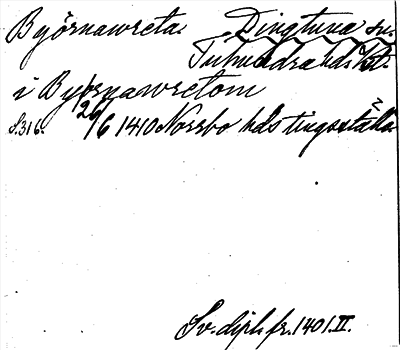 Byörnawreta Dingtuna sn.
Tuhundra hd. Vstm.
i Byörnawretom
S. 316. 26/6 1410 Norrbo hds tingställe
Sv. dipl. fr. 1401. II.